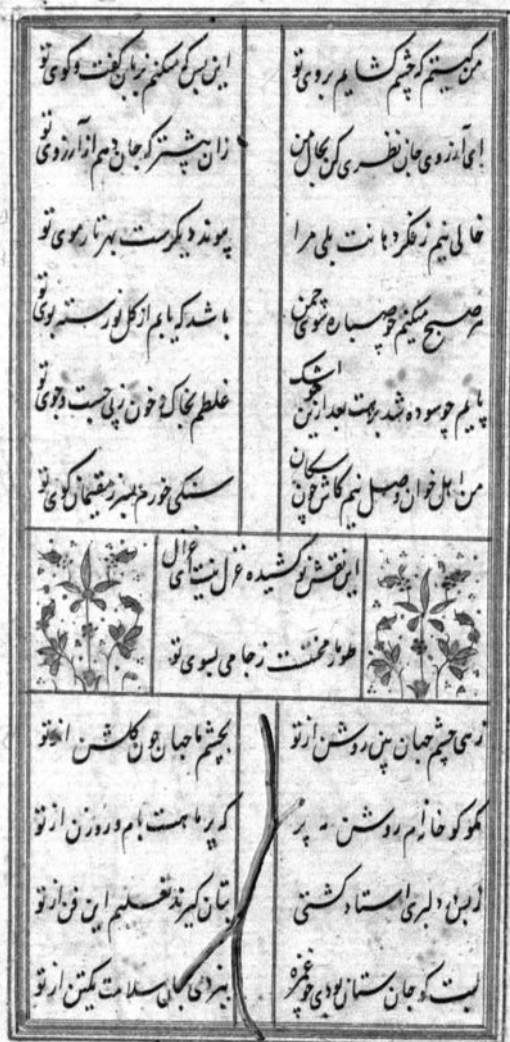 من کیستم که چشم گشایم بروی تو
این بس که میکنم بزبان گفت و کوی تو
ای آرزوی جان نظری کن بحال من
زان پیشتر که جان دهم از آرزوی تو
خالی نیم ز فکر دهانت بلی مرا
پیوند دیگرست بهر تار موی تو
هر صبح میکنم چو صبا ره سوی چمن
باشد که یابم از کل نورسته بوی تو
پایم چو سوده شد برهت بعد ازین چو اشک
غلطم بخاک و خون ز پی جست و جوی تو
من اهل خوان وصل نیم کاش چون سکان
سنکی خورم ز مقیمان کوی تو
این نقش نو کشیده غزل نیست ای غزال
طومار محنتست ز جامی بسوی تو
زهی چشم جهان بین روشن از تو
بچشم ما جهان چون کلشن از تو
مکو کو خانه‌ام روشن
که پر ماهست بام و روزن از تو
ز بس در دلبری استاد کشتی
بتان کیرند تعلیم این فن از تو
لبت کر جان ستان بودی چو غمزه
نبردی جان سلامت یکتن از تو